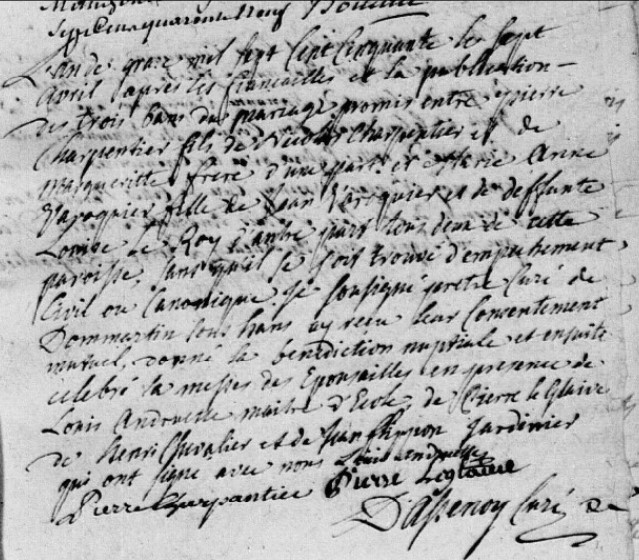 Sept Cens quarente Neuf
L'an de grace mil sept Cent Cinquante le sept
avril apres les fiancailles et la publication
des trois bans du mariage promis entre pierre
Charpentier fils de Nicolas Charpentier et de
Margueritte frere d'une part et Marie Anne
fille de Jean et de deffunte
Louise le Roy d'autre part tous deux de cette
paroisse, sans qu'il se soit trouvé d'empechement
Civil ou Canonique je soussigné pretre Curé de
Dommartin sous hans ay recu leur Consentement
mutuel, donné la benediction nuptiale et ensuite
celebré la messe des Epousailles en presence de
Louis maitre d'Ecole, de Pierre le Glaive
de henri Chevalier et de Jardinier
qui ont signé avec nous Louis
Pierre Charpantier Pierre
Curé de